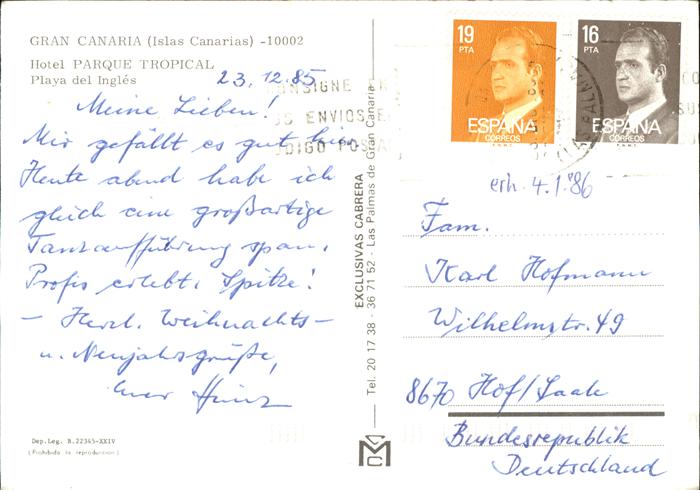 GRAN CANARIA (Islas Canarias) -10002
Hotel PARQUE TROPICAL
Playa del Inglés
23.12.85
Meine Lieben!
Mir gefällt es gut hier.
Heute abend habe ich
gleich eine großartige
Tanzaufführung span.
Profis erlebt. Spitze!
- Herzl. Weihnachts-
u. Neujahrsgrüße,
Euer Heinz
Dep. Leg. B. 22345-XXIV
(Prohibida la reproduccion)
EXCLUSIVAS CABRERA
Tel. 20 17 38 - 36 71 52 - Las Palmas de Gran Canaria
19
PTA
ESPAÑA
CORREOS
16
PTA
ESPAÑA
CORREOS
erh. 4.1.86
Fam.
Karl Hofmann
Wilhelmstr. 49
8670 Hof/Saale
Bundesrepublik
Deutschland